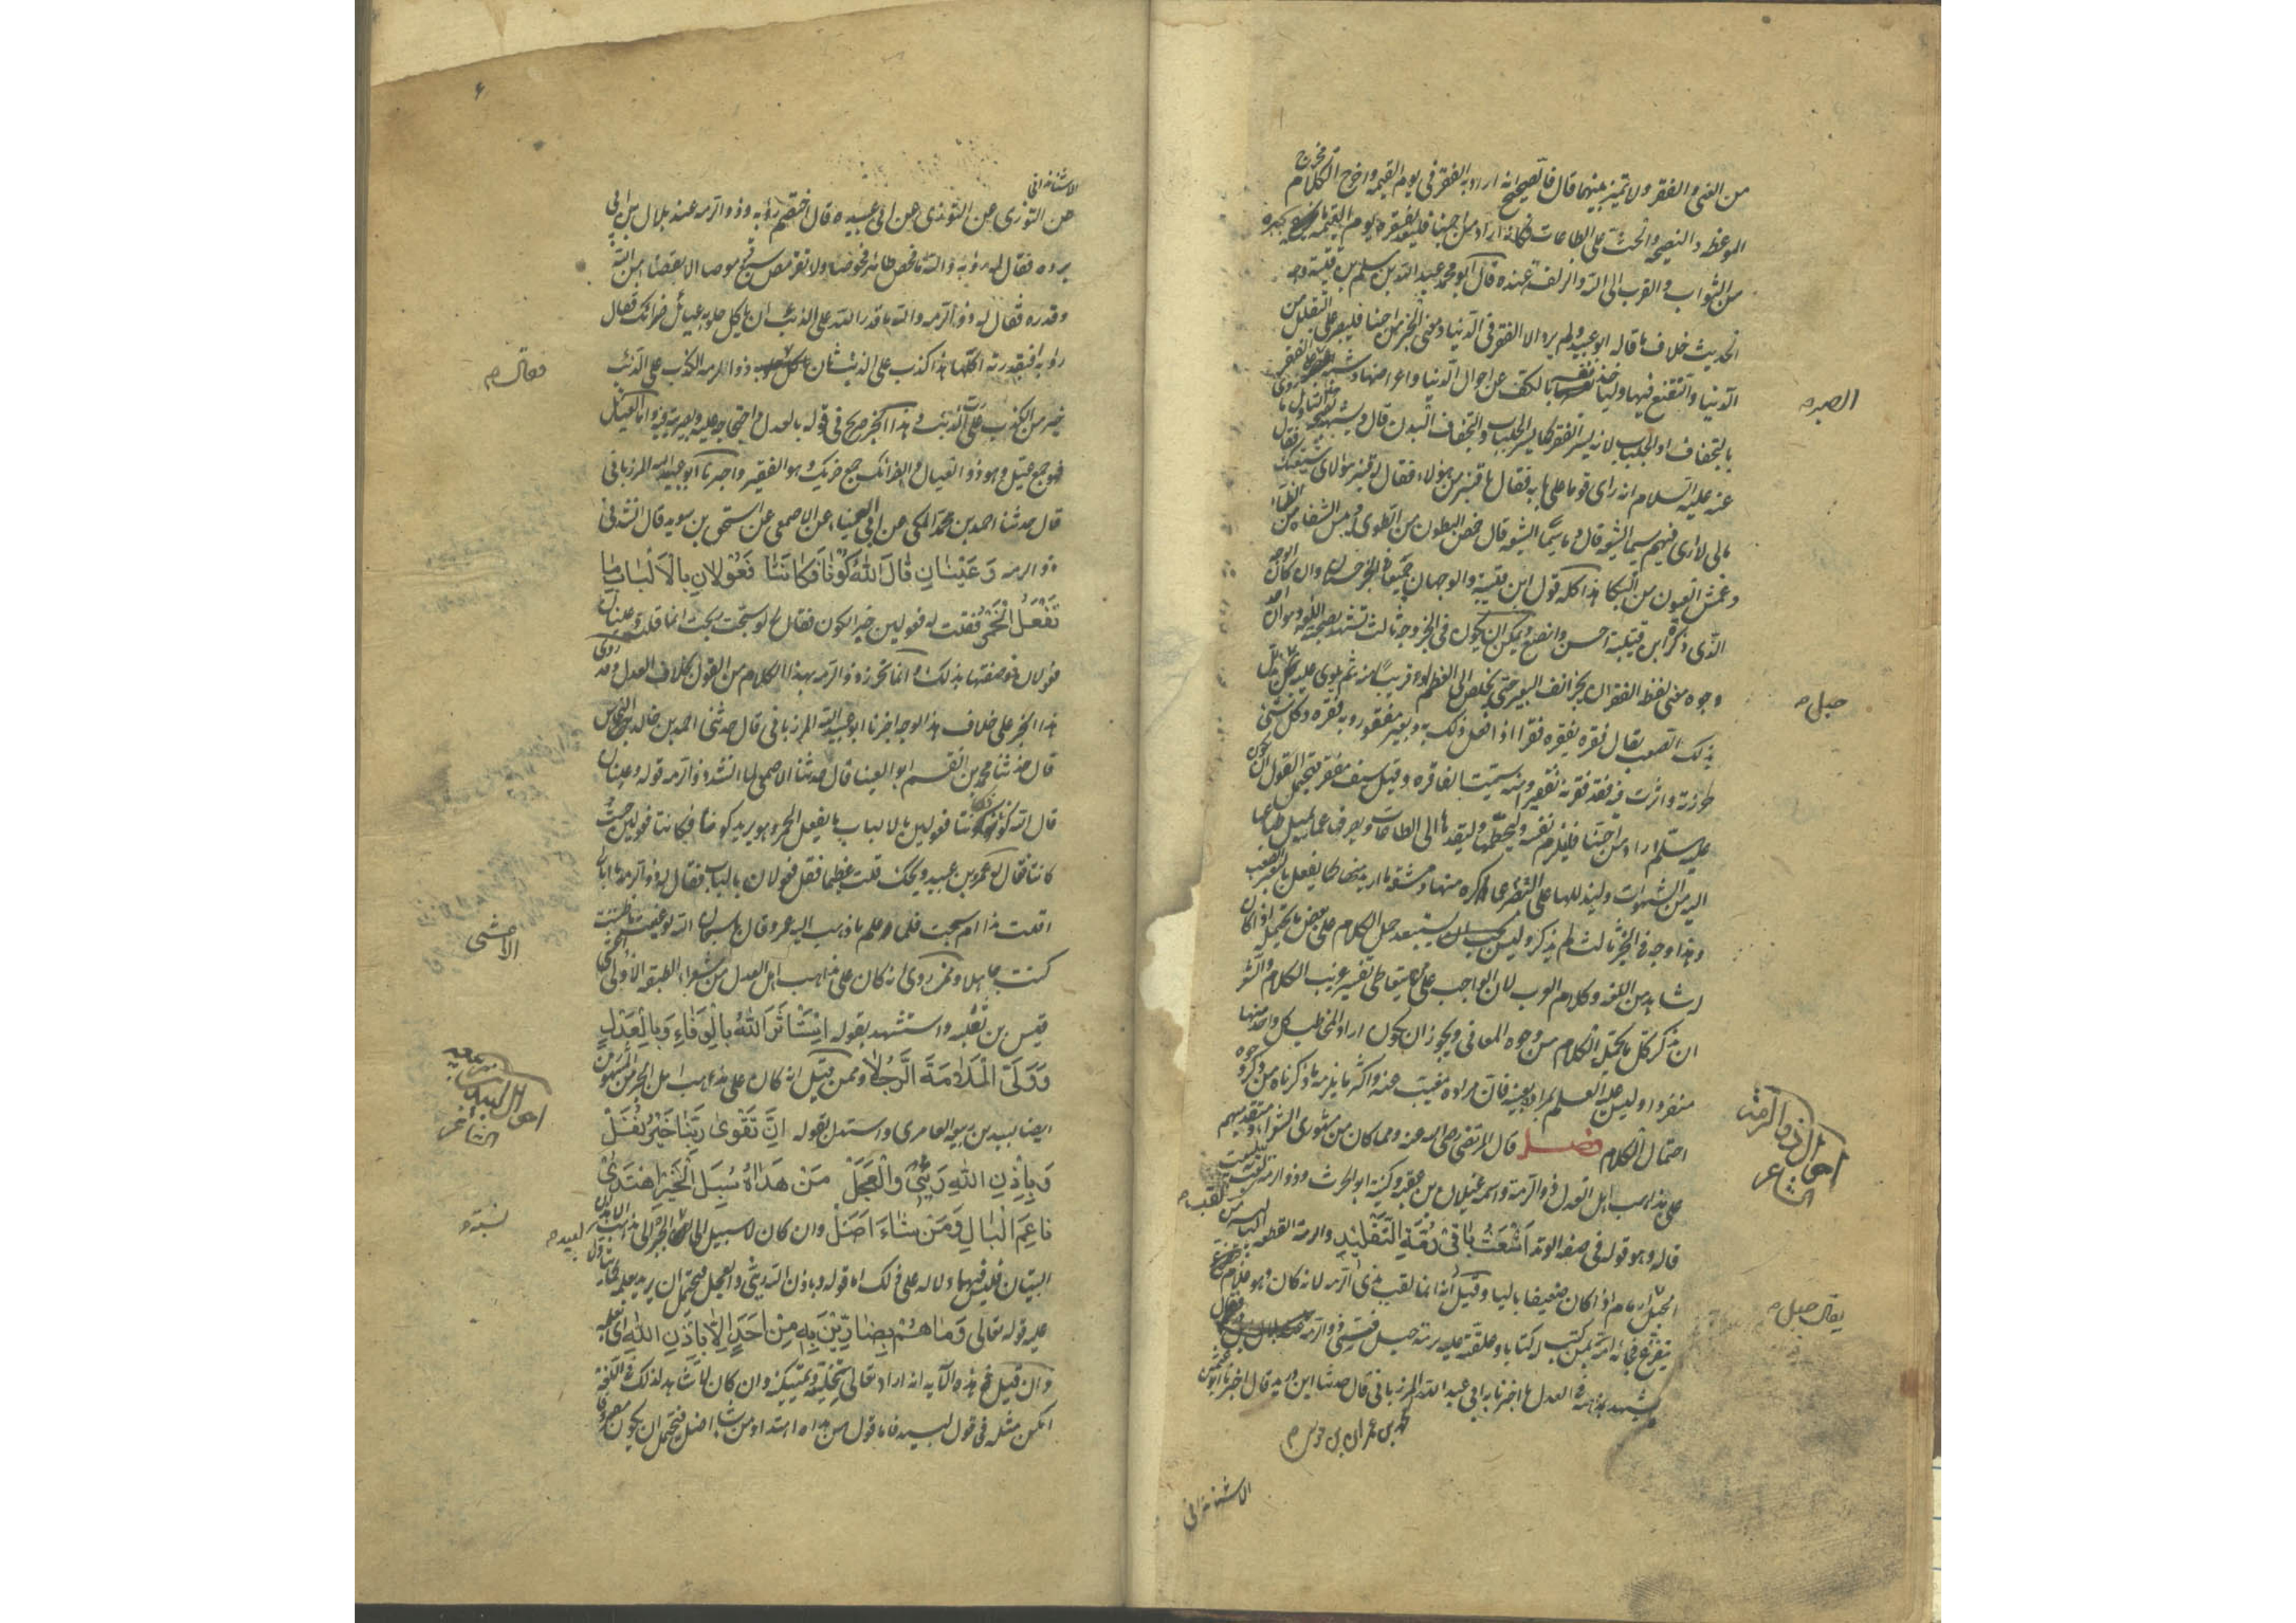 من الغنى والفقر ولا تميز بينهما قال فالصحيح انه اراد به الفقر في يوم القيمه واخرج الكلام مخرج
الموعظه والنصيحه والحث على الطاعات فكانه اراد من احبنا فليعد لفقره يوم القيمه ما يجبره
من الثواب والقرب الى الله والزلفة عنده قال ابو محمد عبد الله بن مسلم بن قتيبة وجه
الحديث خلاف ما قاله ابو عبيد ولم يرد الا الفقر في الدنيا ومعنى الخبر من احبنا فليصبر على التقلل من
الدنيا والتقنع فيها وليأخذ نفسه بالكف عن احوال الدنيا واعراضها وشبه الصبر على الفقر
بالتجفاف او الجلباب لانه يستر الفقر كما يستر الجلباب والتجفاف البدن قال ويشهد لصحة هذا التاويل ما روى
عنه عليه السلام انه راى قوما على بابه فقال يا قنبر من هؤلاء فقال له قنبر هؤلاء شيعتك فقال
مالى لا ارى فيهم سيما الشيعة قال وما سيما الشيعة قال خمص البطون من الطوى يبس الشفاه من الظماء
وعمش العيون من البكا هذا كله قول ابن قتيبة والوجهان جميعا في الخبر حسنان وان كان الوجه
الذى ذكره ابن قتيبة احسن وانصع ويمكن ان يكون في الخبر وجه ثالث تشهد بصحته اللغه وهو ان احد
وجوه معنى لفظ الفقر ان يحز انف البعير حتى يخلص الى العظم او قريبا منه ثم يلوى عليه حبل يذلل
بذلك الصعب يقال فقره يفقره فقرا اذا فعل ذلك به وبعير مفقور وبه فقرة وكل شئ
حززته واثرت فيه فقد فقرته تفقيرا ومنه سميت الفاقره وقيل سيف مفقر فيحتمل القول ان يكون
عليه السلم اراد من احبنا فليزم نفسه وليخطمها وليقدها الى الطاعات ويصرفها عما تميل طباعها
اليه من الشهوات وليذللها على الصبر عما كره منها ومشقة ما اريد منها كما يفعل بالبعير الصعب
وهذا وجه في الخبر ثالث لم يذكر وليس يجب ان يستبعد حمل الكلام على بعض ما يحتمله اذا كان
له شاهد من اللغه وكلام العرب لان الواجب على من يتعاطى تفسير غريب الكلام والشعر
ان يذكر كل ما يحتمل الكلام من وجوه المعاني ويجوز ان يكون اراد المخاطب كل واحد منها
منفردا وليس عليه العلم بمراده بعينه فان مراده مغيب عنه واكثر ما يلزمه ما ذكرناه من ذكر وجوه
احتمال الكلام فصل قال المرتضى رضى الله عنه ومما كان من مشهورى الشعراء ومتقدميهم
على مذاهب اهل العدل ذو الرمة واسمه غيلان بن عقبه وكنيته ابو الحرث وذو الرمة لقب به لبيت
قاله وهو قوله فى صفة الوتد اَشْعَثُ بَاقى رُمَّةِ التَّقْلِيْدِ والرمة القطعة البالية من
الحبل يقال حبل ارمام اذا كان ضعيفا باليا وقيل انه انما لقب بذى الرمه لانه كان وهو غلام
يتفزع فجائه امه بمن كتب له كتابا وعلقته عليه برمة حبل فسمى ذو الرمة
ويشهد بمذهبه فى العدل ما اخبرنا به ابى عبد الله المرزبانى قال حدثنا ابن دريد قال اخبرنا ابو عثمن
محمد بن عمران بن موسى
الاشناندانى
الصبر
حبل
احوال ذو الرمة
الشاعر
يقال حبل
الاشناندانى
عن التوزى عن ابى عبيده قال اختصم رؤبه وذو الرمه عند بلال بن ابى
برده فقال له رؤبة والله ما فحص طائر فحوصا ولا تقرمص سبع قرموصا الا بقضاء من الله
وقدره فقال له ذو الرمه والله ما قدر الله على الذئب ان ياكل حلوبه عيائل ضرائك فقال
رؤبه افبقدرته اكلها هذا كذب على الذئب ثان فقال ذو الرمه الكذب على الذئب
خير من الكذب على رب الذئب وهذا الخبر صريح فى قوله بالعدل واحتجاجه عليه وبصيرته فيه واما العيائل
فهو جمع عيّل وهو ذو العيال والضرائك جمع ضريك وهو الفقير واخبرنا ابو عبيد الله المرزبانى
قال حدثنا احمد بن محمد المكى عن ابى العيناء عن الاصمعى عن اسحق بن سويد قال انشدنى
ذو الرمه وَعَيْنَانِ قَالَ اللهُ كُوْنَا فَكَانَتَا فَعُوْلَانِ بِالْاَلْبَابِ مَا
تَفْعَلُ الْخَمْرُ فقلت له فعولين خبر الكون فقال لو سبحت ربحت انما قلت وعينان
فعولان وصفتهما بذلك وانما تحرز ذو الرمه بهذا الكلام من القول بخلاف العدل وقد روى
هذا الخبر على خلاف هذا الوجه اخبرنا ابو عبيد الله المرزبانى قال حدثنى احمد بن خالد النخاس
قال حدثنا محمد بن القسم ابو العينا قال حدثنا الاصمعى لما انشد ذو الرمه قوله وعينان
قال الله كونا فكانتا فعولين بالالباب ما يفعل الخمر وهو يريد كونا فكانتا فعولين حيث
كانتا فقال له عمرو بن عبيد ويحك قلت عظيما فقل فعولان بالالباب فقال له ذو الرمه ما ابالى
اقلت هذا ام سبحت فلما علم ما ذهب اليه عمرو قال يا سبحان الله لو عنيت ما ظننت
كنت جاهلا وممن روى انه كان على مذاهب اهل العدل من شعراء الطبقه الاولى اعشى
قيس بن ثعلبه واستشهد بقوله اِسْتَأثَرَ اللهُ بِالْوَفَاءِ وَبِالْعَدْلِ
وَوَلَّى الْمَلَامَةَ الرَّجُلَا وممن قيل انه كان على مذاهب اهل الجبر من المشهورين
ايضا لبيد بن ربيعه العامرى واستدل بقوله اِنَّ تَقْوٰى رَبِّنَا خَيْرُ نَفَلْ
وَبِاِذْنِ اللهِ رَيْثِى وَالْعَجَلْ مَنْ هَدَاهُ سُبُلَ الْخَيْرِ اهْتَدٰى
نَاعِمَ الْبَالِ وَمَنْ شَاءَ اَضَلْ وان كان لا سبيل الى نسبة الجبر الى مذهب لبيد الا هذان
البيتان فليس فيهما دلاله على ذلك اما قوله وباذن الله ريثى والعجل فيحتمل ان يريد بعلمه كما يتاول
عليه قوله تعالى وَمَا هُمْ بِضَارِّيْنَ بِهِ مِنْ اَحَدٍ اِلَّا بِاِذْنِ اللهِ اى بعلمه
وان قيل فى هذه الآيه انه اراد تعالى بتخليته وتمكينه وان كان لا شاهد لذلك فى اللغه
امكن مثله فى قول لبيد فاما قوله من هداه اهتدى ومن شاء اضل فيحتمل ان يكون مصروفا
فقال
الاعشى
احوال لبيد بن ربيعة
الشاعر
نسبة
لبيد